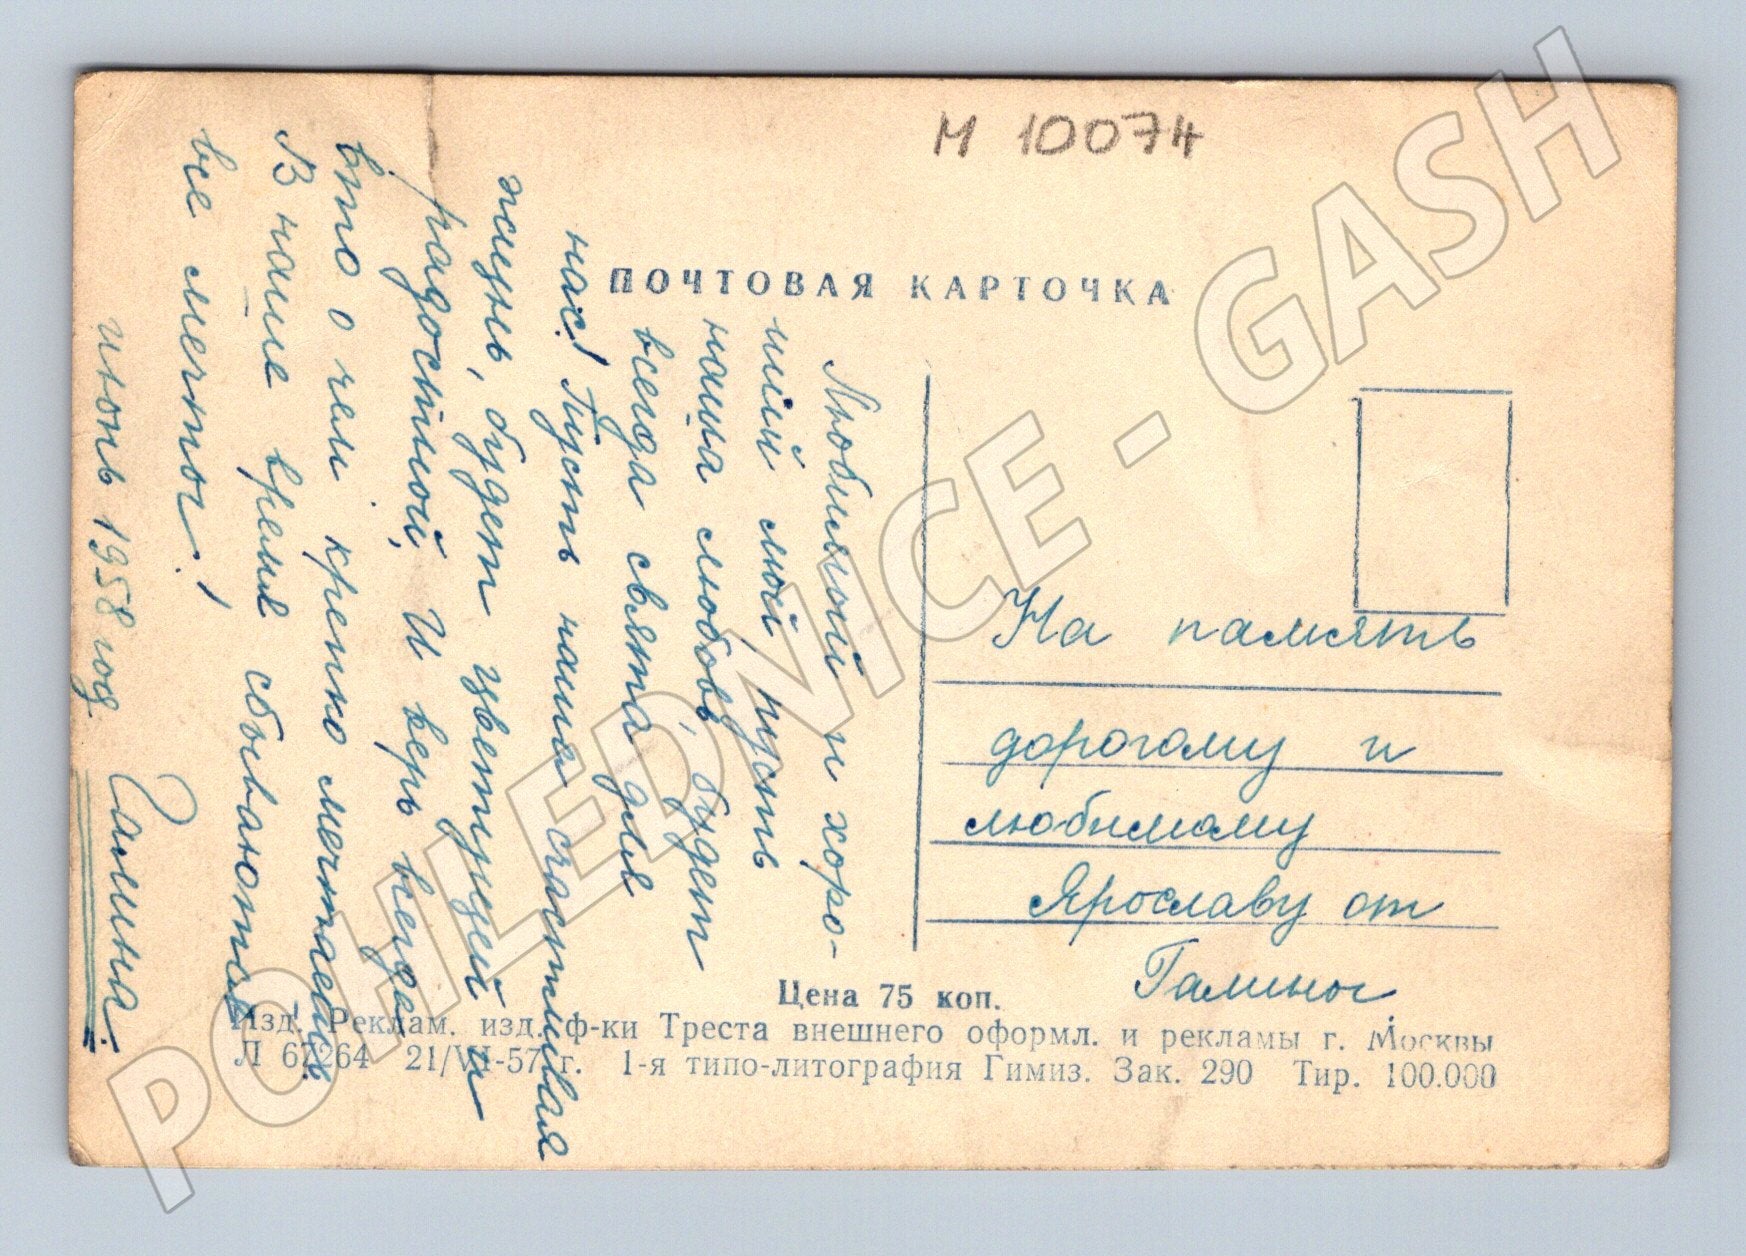 М 10074
ПОЧТОВАЯ КАРТОЧКА
Любимый и хоро-
ший мой пусть
наша любовь будет
всегда свята для
нас! Пусть наша счастливая
жизнь, будет цветущей и
радостной. И верь всегда
в то о чем крепко мечтаешь
В наше время сбываются
все мечты!
июнь 1958 год. Галина.
На память
дорогому и
любимому
Ярославу от
Галины
Цена 75 коп.
Изд. Реклам. изд. ф-ки Треста внешнего оформл. и рекламы г. Москвы
Л 67264 21/VII-57 г. 1-я типо-литография Гимиз. Зак. 290 Тир. 100.000
POHLEDNICE - GASH